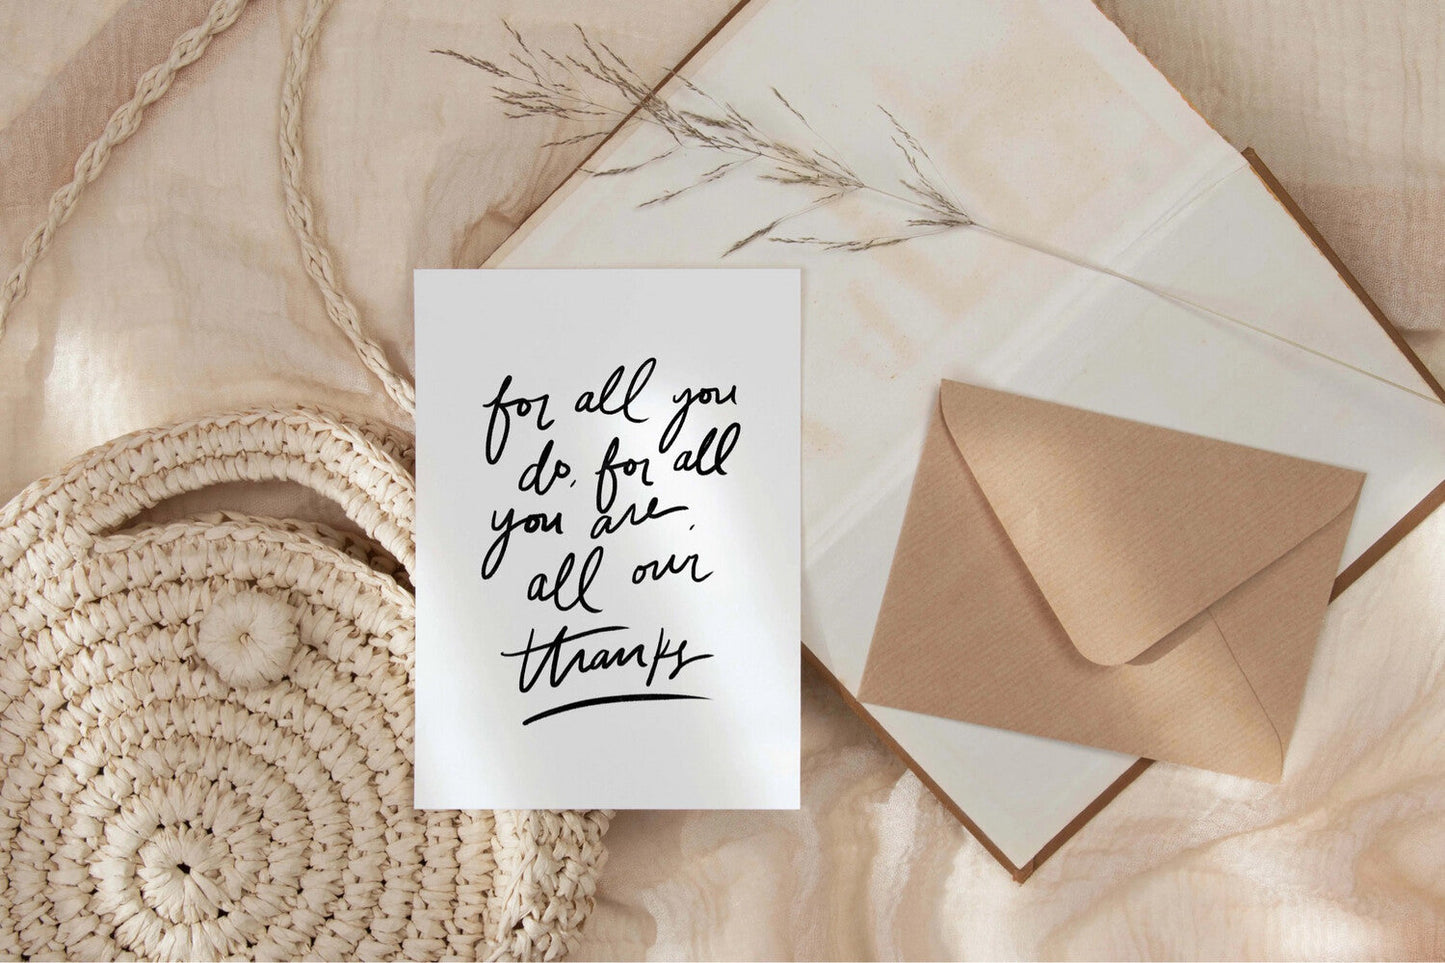 for all you
do, for all
you are,
all our
thanks